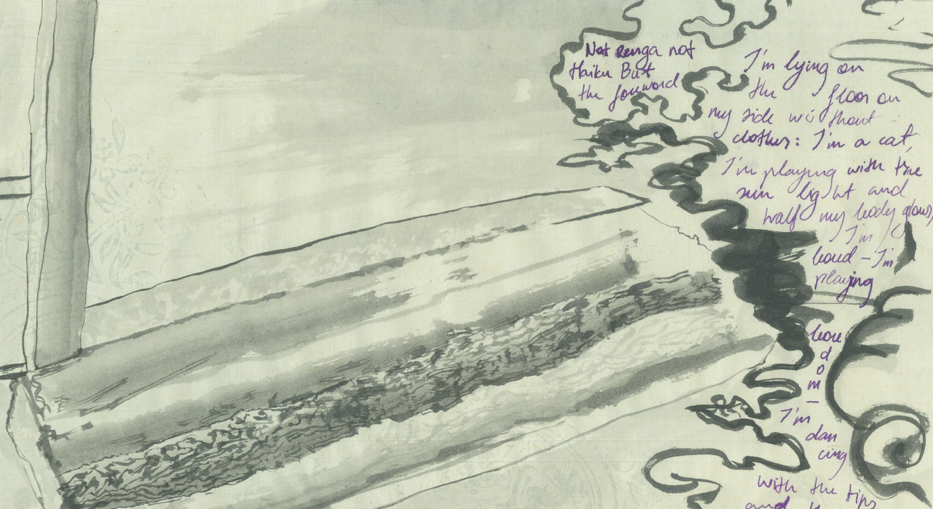 Not renga not
Haiku But
the forword
I'm lying on
the floor on
my side without
clothes: I'm a cat,
I'm playing with the
sun light and
half my body glows,
I'm
bored – I'm
playing
bore
d
o
m
–
I'm
dan
cing
with the tips
and